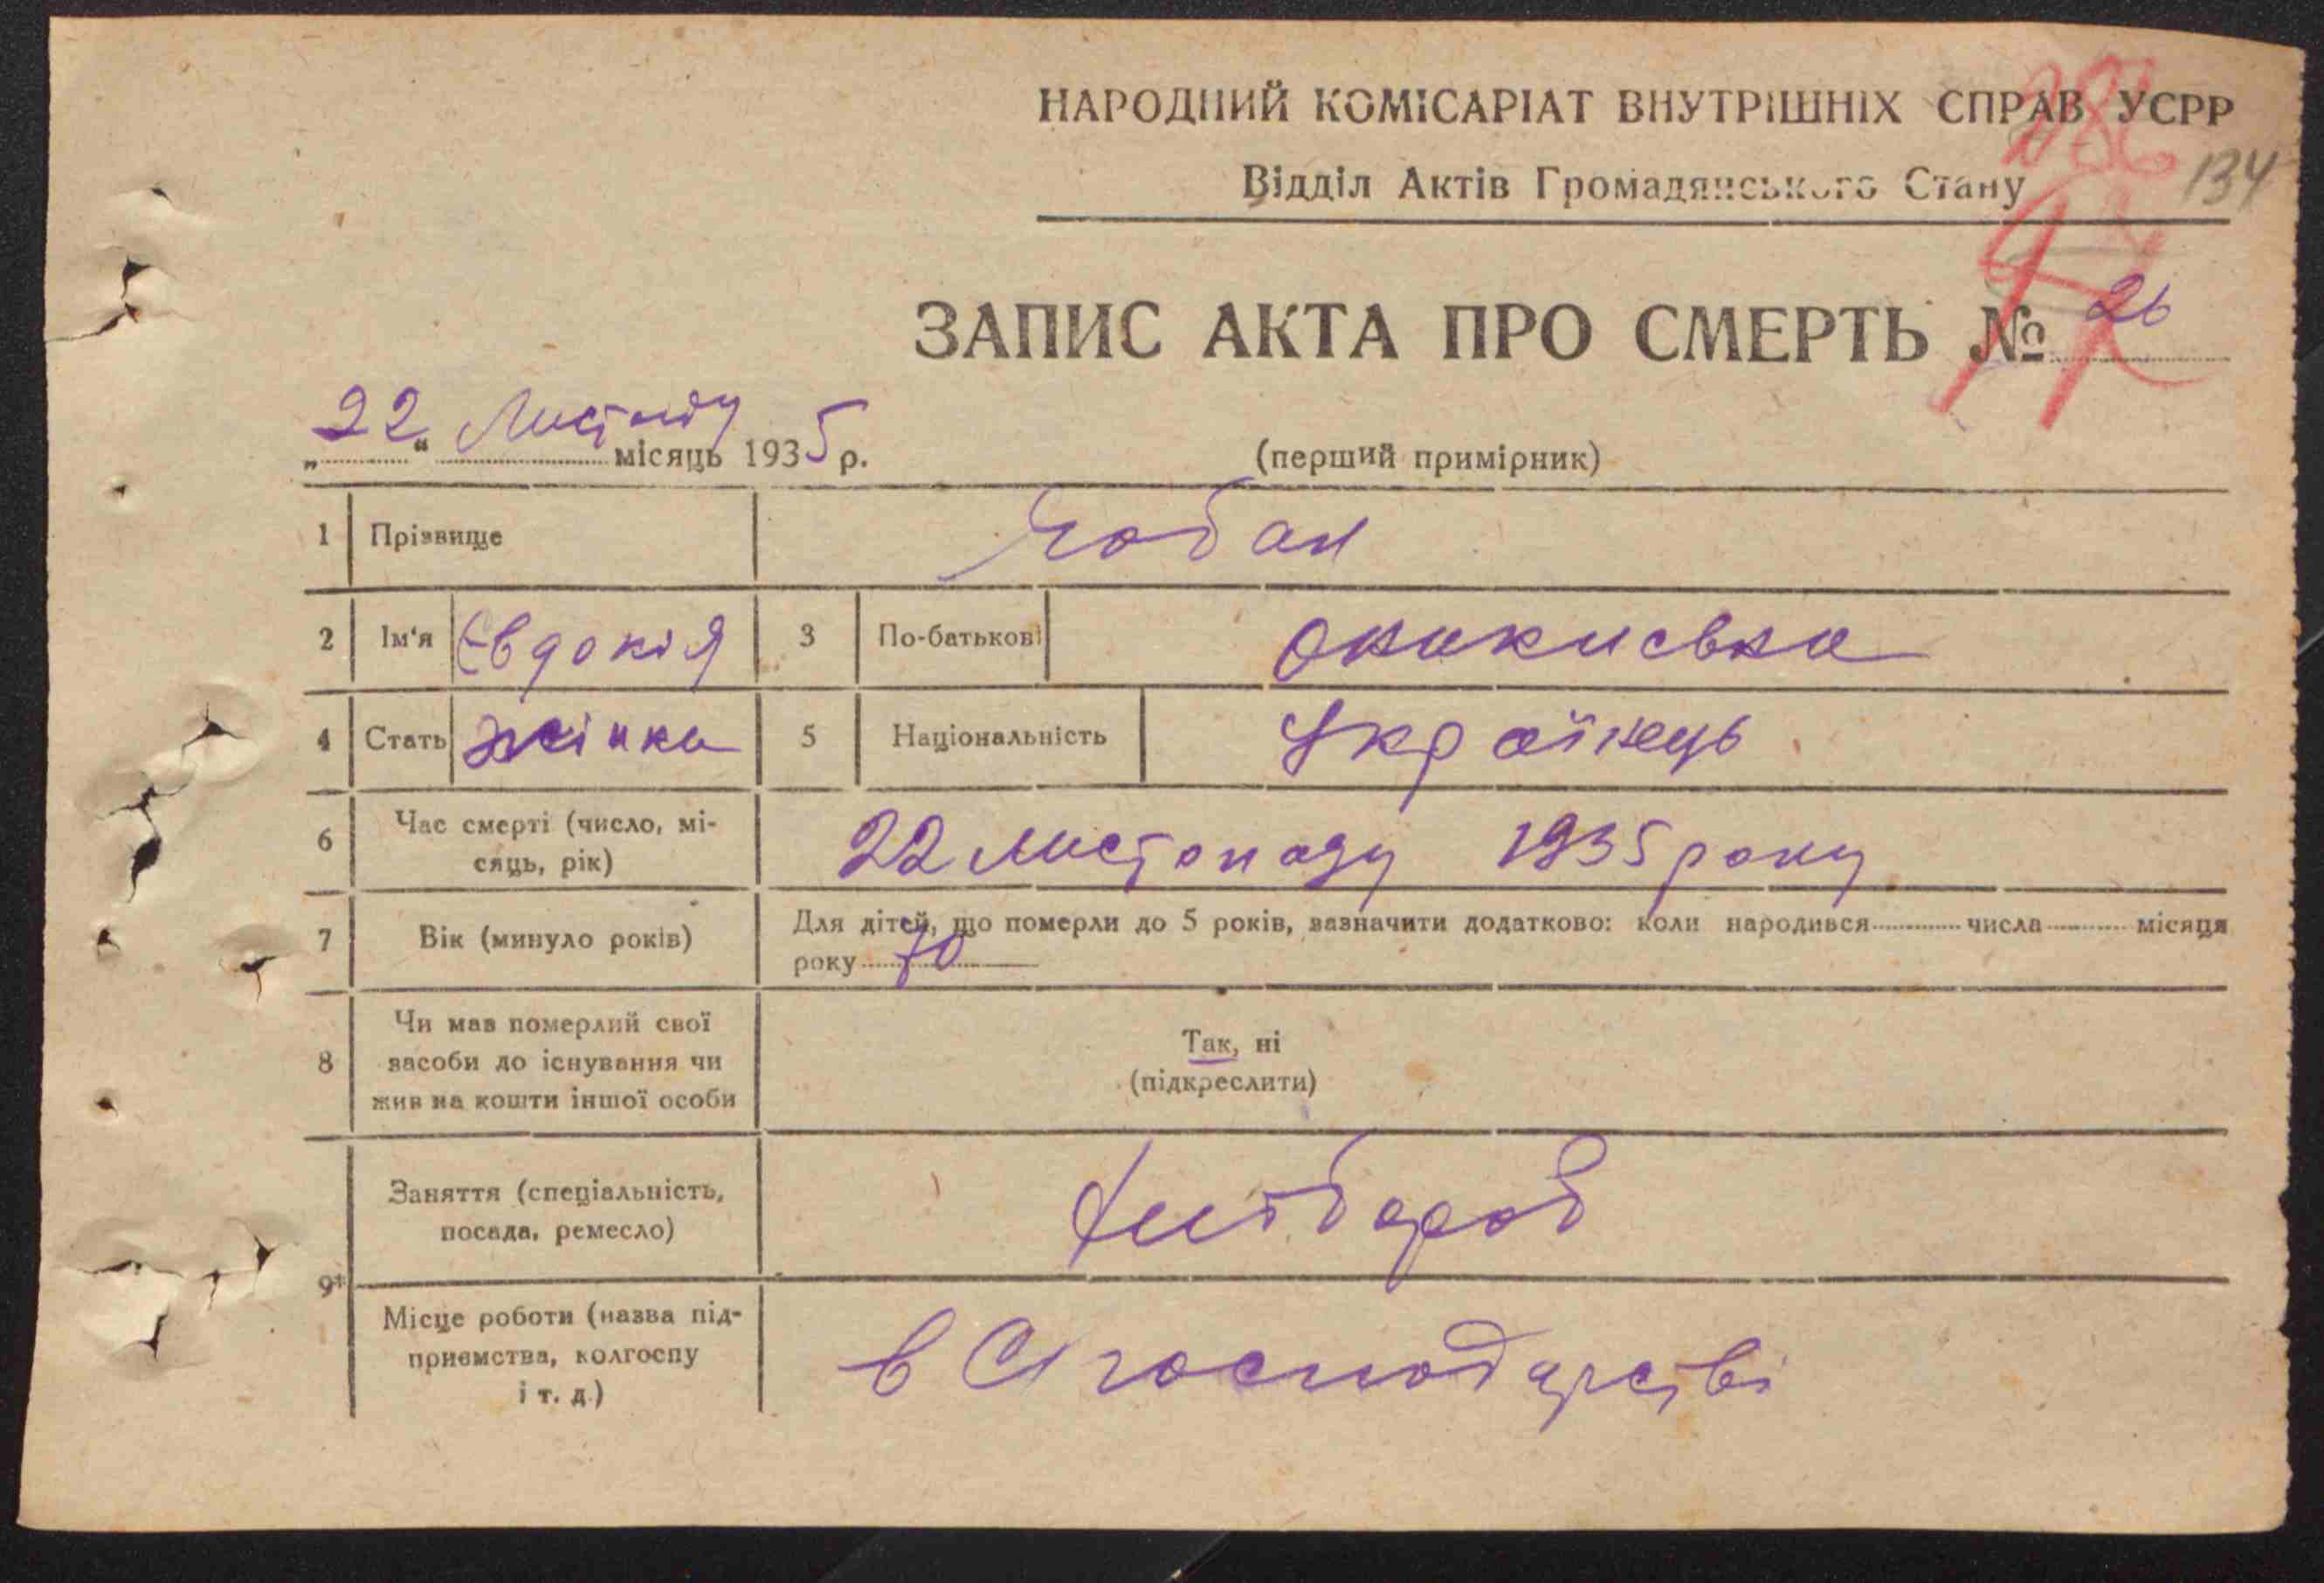 НАРОДНИЙ КОМІСАРІАТ ВНУТРІШНІХ СПРАВ УСРР
Відділ Актів Громадянського Стану
134
ЗАПИС АКТА ПРО СМЕРТЬ № 26
„22“ Листопаду місяць 1935 р.
(перший примірник)
1 Прізвище
2 Ім'я Євдокія 3 По-батькові
4 Стать жінка 5 Національність Українець
6 Час смерті (число, мі-
сяць, рік) 22 листопаду 1935 року
7 Вік (минуло років) Для дітей, що померли до 5 років, зазначити додатково: коли народився числа місяця
року 70
8 Чи мав померлий свої
засоби до існування чи
жив на кошти іншої особи
Так, ні
(підкреслити)
9* Заняття (спеціальність,
посада, ремесло) Хлібороб
Місце роботи (назва під-
приємства, колгоспу
і т. д.) в С/господарстві